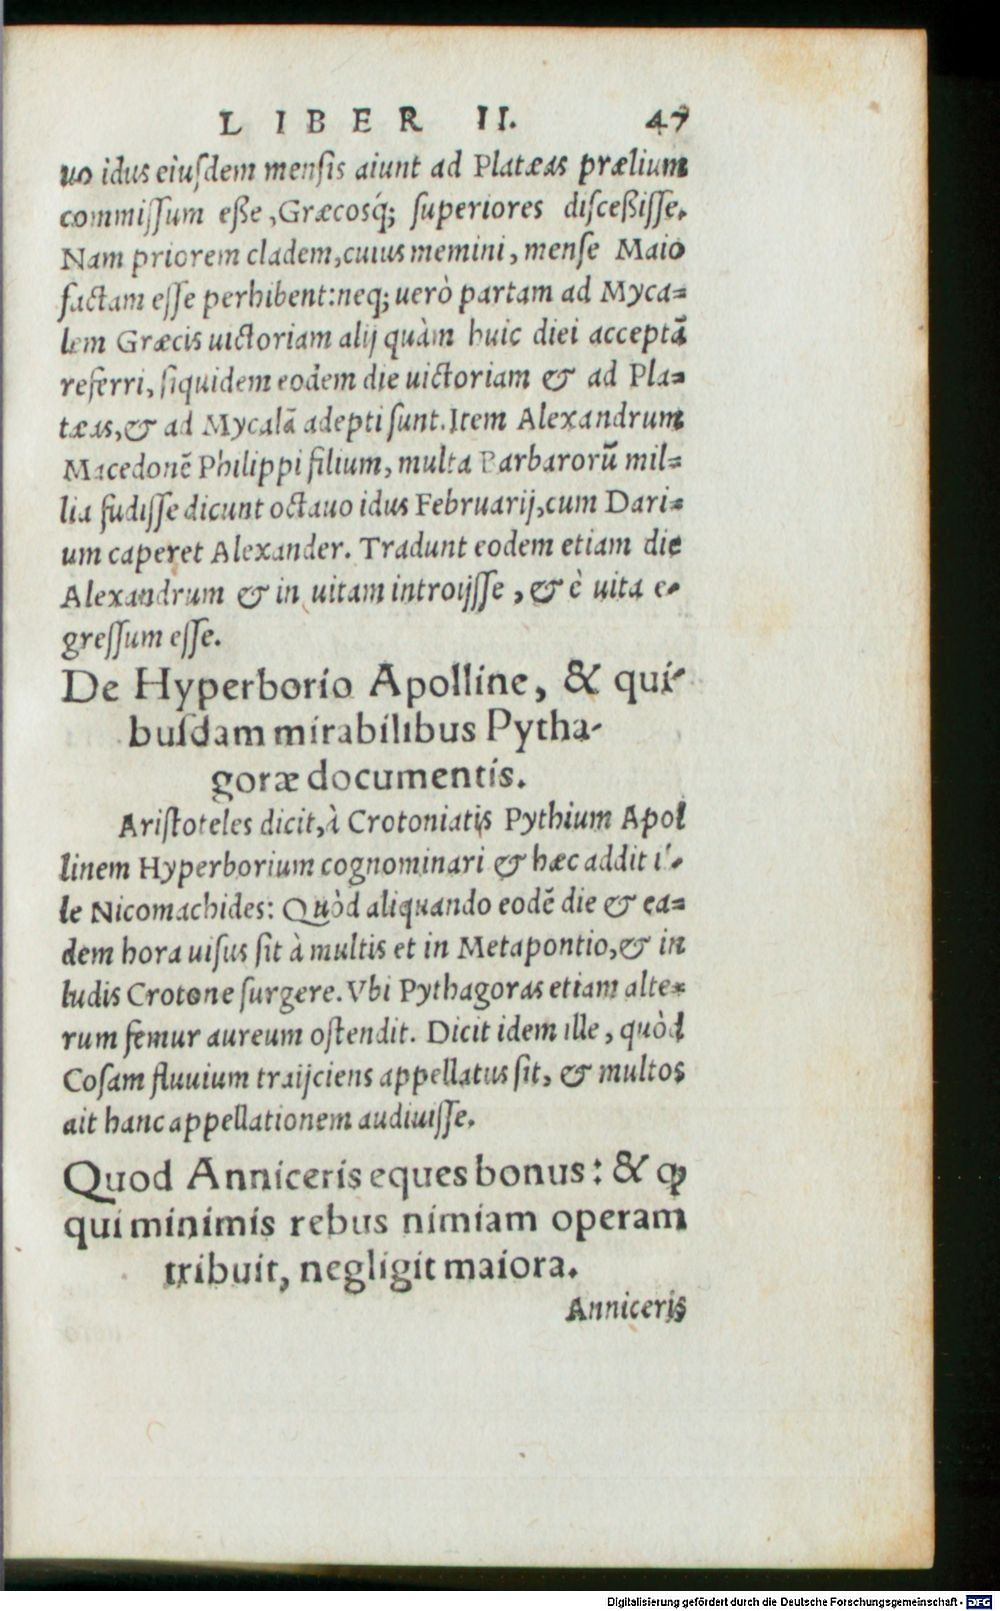 LIBER II. 47
uo idus eiusdem mensis aiunt ad Platæas prælium
commissum eße, Græcosq́; superiores disceßisse.
Nam priorem cladem, cuius memini, mense Maio
factam esse perhibent: neq; uerò partam ad Myca=
lem Græcis uictoriam alij quàm huic diei acceptā
referri, siquidem eodem die uictoriam & ad Pla=
tæas, & ad Mycalā adepti sunt. Item Alexandrum
Macedonē Philippi filium, multa Barbarorū mil=
lia fudisse dicunt octauo idus Februarij, cum Dari=
um caperet Alexander. Tradunt eodem etiam die
Alexandrum & in uitam introijsse, & è uita e-
gressum esse.
De Hyperborio Apolline, & qui-
busdam mirabilibus Pytha-
goræ documentis.
Aristoteles dicit, à Crotoniatis Pythium Apol
linem Hyperborium cognominari & hæc addit il-
le Nicomachides: Quòd aliquando eodē die & ea=
dem hora uisus sit à multis et in Metapontio, & in
ludis Crotone surgere. Vbi Pythagoras etiam alte=
rum femur aureum ostendit. Dicit idem ille, quòd
Cosam fluuium traijciens appellatus sit, & multos
ait hanc appellationem audiuisse.
Quod Anniceris eques bonus: & ꝙ
qui minimis rebus nimiam operam
tribuit, negligit maiora.
Anniceris
Digitalisierung gefördert durch die Deutsche Forschungsgemeinschaft - DFG